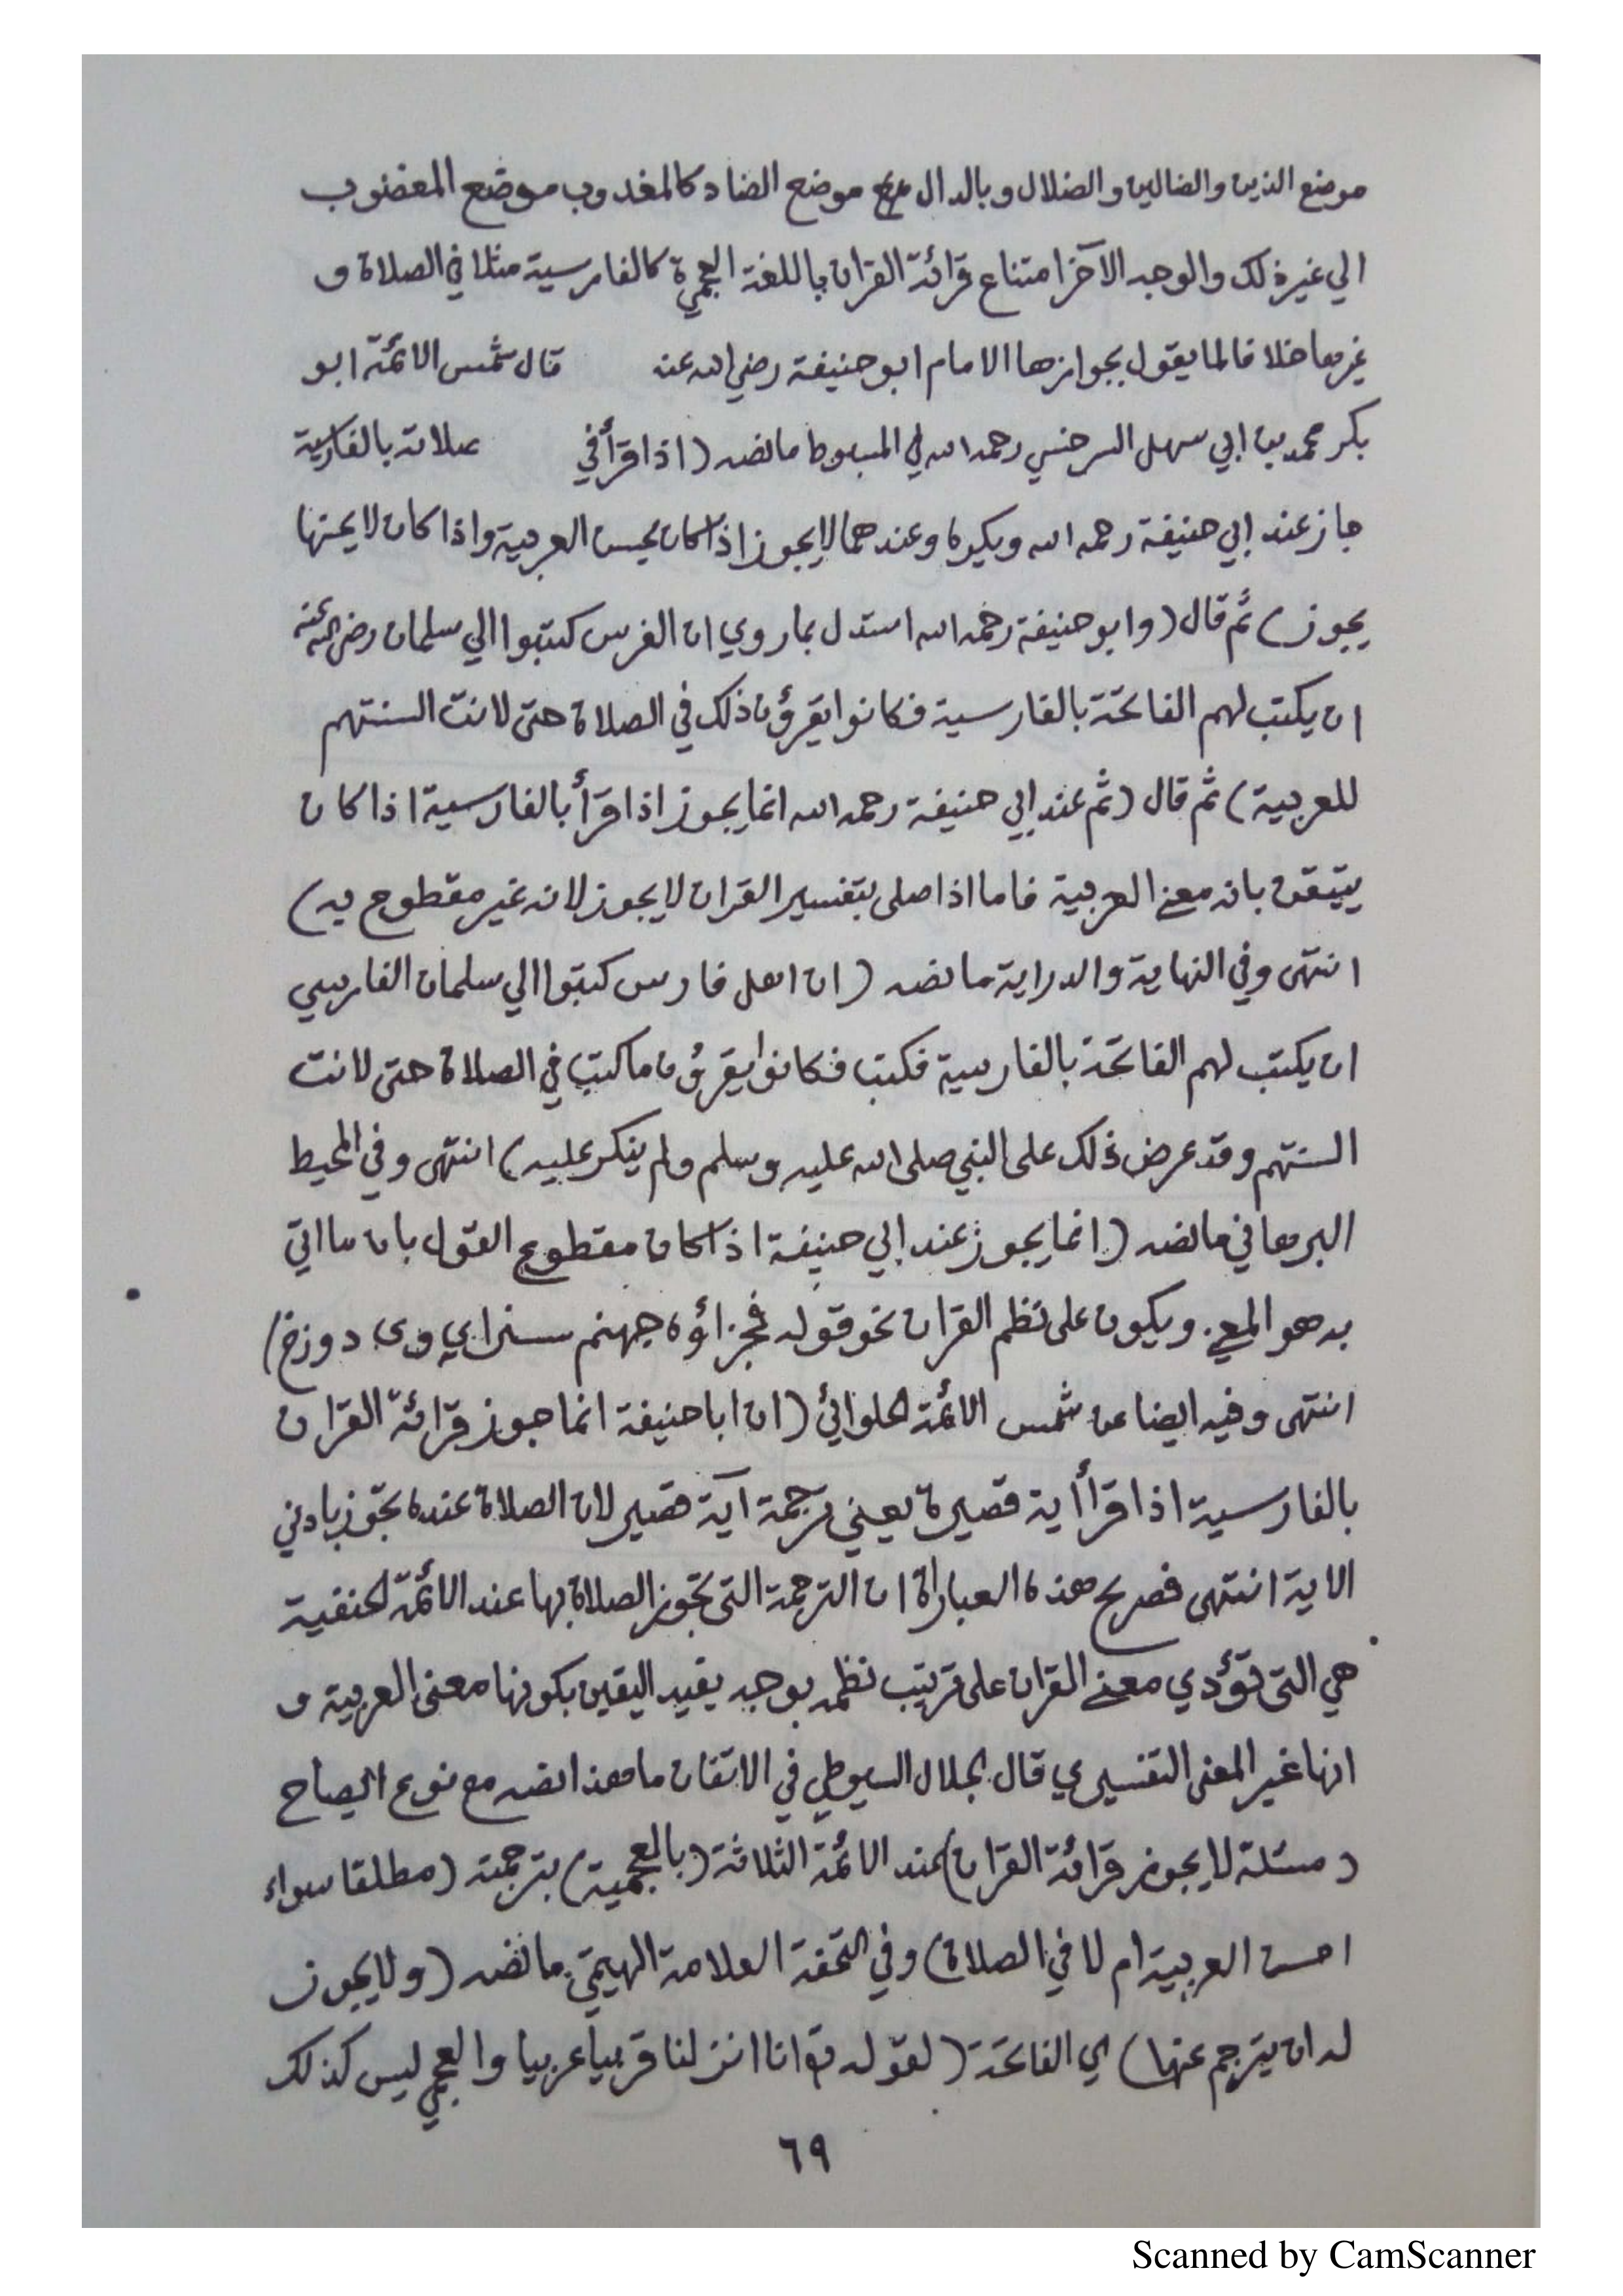 موضع الذين والضالين والضلال وبالدال موضع الضاد كالمغدوب موضع المغضوب
الي غير ذلك والوجه الآخر امتناع قرائة القران باللغة العجمية كالفارسية مثلا في الصلاة و
غيرها خلافا لما يقول بجوازها الامام ابو حنيفة رضي الله عنه قال شمس الائمة ابو
بكر محمد بن ابي سهل السرخسي رحمه الله في المبسوط ما نصه (اذا قرأ في صلاته بالفارسية
جاز عند ابي حنيفة رحمه الله ويكره وعندهما لا يجوز اذا كان يحسن العربية واذا كان لا يحسنها
يجوز) ثم قال (وابو حنيفة رحمه الله استدل بما روي ان الفرس كتبوا الي سلمان رضي الله عنه
ان يكتب لهم الفاتحة بالفارسية فكانوا يقرؤن ذلك في الصلاة حتى لانت السنتهم
للعربية) ثم قال (ثم عند ابي حنيفة رحمه الله انما يجوز اذا قرأ بالفارسية اذا كان
يتيقن بانه معنى العربية فاما اذا صلى بتفسير القران لا يجوز لانه غير مقطوع به)
انتهى وفي النهاية والدراية ما نصه (ان اهل فارس كتبوا الي سلمان الفارسي
ان يكتب لهم الفاتحة بالفارسية فكتب فكانوا يقرؤن ما كتب في الصلاة حتى لانت
السنتهم وقد عرض ذلك على النبي صلى الله عليه وسلم ولم ينكر عليه) انتهى وفي المحيط
البرهاني ما نصه (انما يجوز عند ابي حنيفة اذا كان مقطوع القول بان ما اتي
به هو المعنى ويكون على نظم القران نحو قوله فجزاؤه جهنم سزاي وى دوزخ)
انتهى وفيه ايضا عن شمس الائمة الحلوائي (ان ابا حنيفة انما جوز قرائة القران
بالفارسية اذا قرأ أية قصيرة يعني ترجمة آية قصير لان الصلاة عنده تجوز بادني
الاية انتهى فصريح هذه العباراة ان الترجمة التى تجوز الصلاة بها عند الائمة الحنفية
هي التى تؤدي معنى القران على ترتيب نظمه بوجه يفيد اليقين بكونها معنى العربية و
انها غير المعنى التفسيري قال الجلال السيوطي في الاتقان ما هذا نصه مع نوع ايضاح
(مسئلة لا يجوز قرائة القران) عند الائمة الثلاثة (بالعجمية) بترجمة (مطلقا سواء
احسن العربية ام لا في الصلاة) وفي التحفة العلامة الهيتمي ما نصه (ولا يجوز
له ان يترجم عنها) اي الفاتحة (لقوله انا انزلنا عربيا والعجمي ليس كذلك
٦٩
Scanned by CamScanner